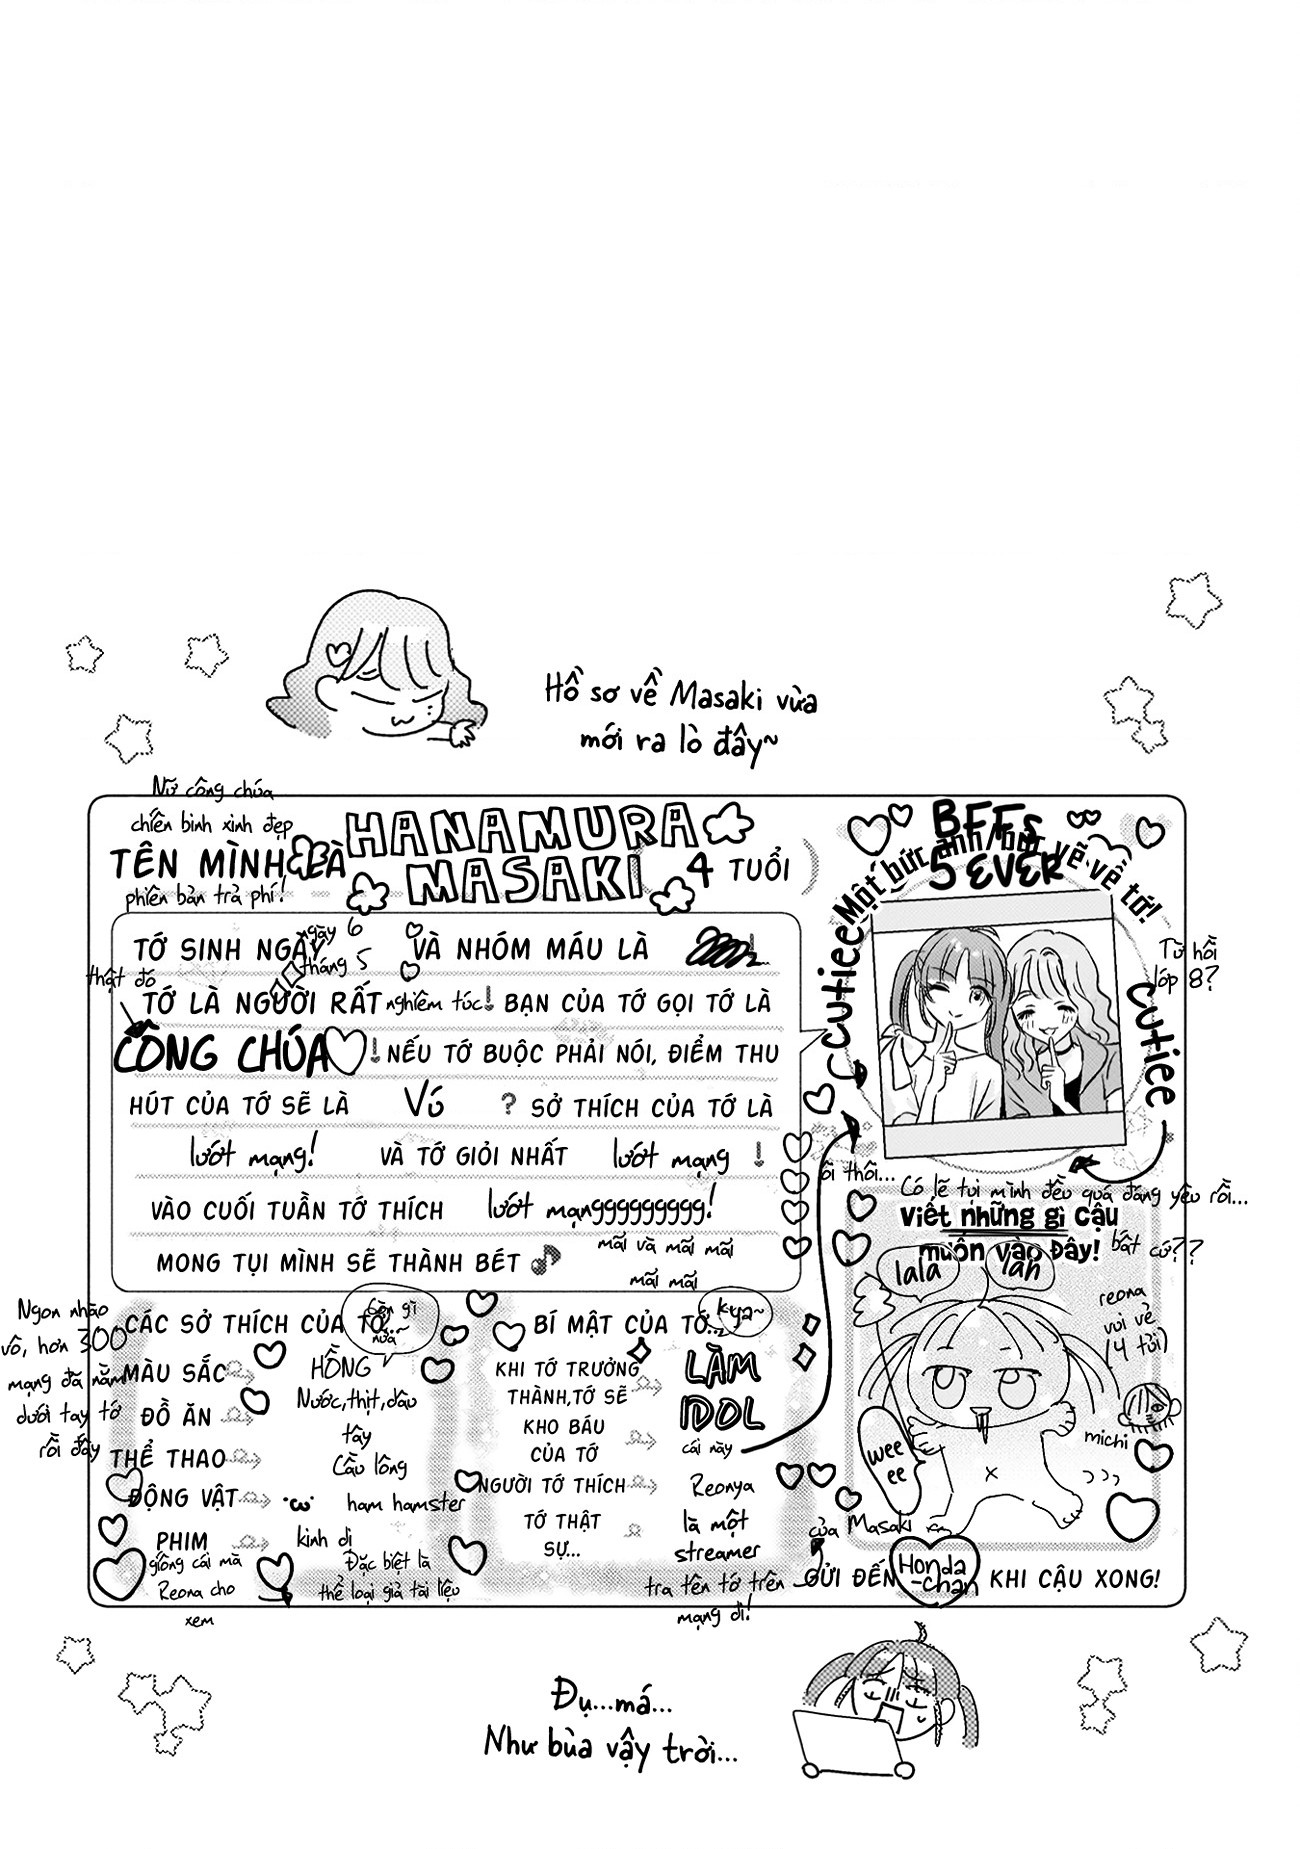 Hồ sơ về Masaki vừa
mới ra lò đây~
Nữ công chúa
chiến binh xinh đẹp
phiên bản trả phí!
TÊN MÌNH LÀ
HANAMURA
MASAKI
4 TUỔI
TỚ SINH NGÀY
ngày 6
tháng 5
VÀ NHÓM MÁU LÀ
thật đó
TỚ LÀ NGƯỜI RẤT nghiêm túc! BẠN CỦA TỚ GỌI TỚ LÀ
CÔNG CHÚA! NẾU TỚ BUỘC PHẢI NÓI, ĐIỂM THU
HÚT CỦA TỚ SẼ LÀ Vú ? SỞ THÍCH CỦA TỚ LÀ
lướt mạng! VÀ TỚ GIỎI NHẤT lướt mạng !
VÀO CUỐI TUẦN TỚ THÍCH lướt mạnggggggggg!
mãi và mãi mãi
mãi mãi
MONG TỤI MÌNH SẼ THÀNH BÉT
BFFs
5 EVER
Một bức ảnh/bức vẽ về tớ!
cutiee
cutiee
Từ hồi
lớp 8?
ôi thôi...
Có lẽ tụi mình đều quá đáng yêu rồi...
Viết những gì cậu
muốn vào Đây!
bất cứ??
lala
lah
reona
vui vẻ
(4 tủi)
michi
weee
ee
của Masaki
Ngon nhào
vô, hơn 300
mạng đã nằm
dưới tay tớ
rồi đấy
CÁC SỞ THÍCH CỦA TỚ...
Còn gì
nữa~
MÀU SẮC
HỒNG
ĐỒ ĂN
Nước,thịt,dâu
tây
THỂ THAO
Cầu lông
ĐỘNG VẬT
•ω•
ham hamster
PHIM
kinh dị
giống cái mà
Reona cho
xem
Đặc biệt là
thể loại giả tài liệu
BÍ MẬT CỦA TỚ...
kya~
KHI TỚ TRƯỞNG
THÀNH,TỚ SẼ
LÀM
IDOL
KHO BÁU
CỦA TỚ
cái này
NGƯỜI TỚ THÍCH
Reonya
TỚ THẬT
SỰ...
là một
streamer
tra tên tớ trên
mạng đi!
GỬI ĐẾN Honda
-chan KHI CẬU XONG!
Đụ...má...
Như bùa vậy trời...